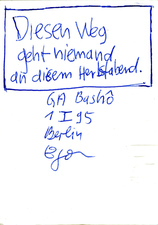 Diesen Weg
geht niemand
an diesem Herbstabend.
GA Bashô
1 I 95
Berlin